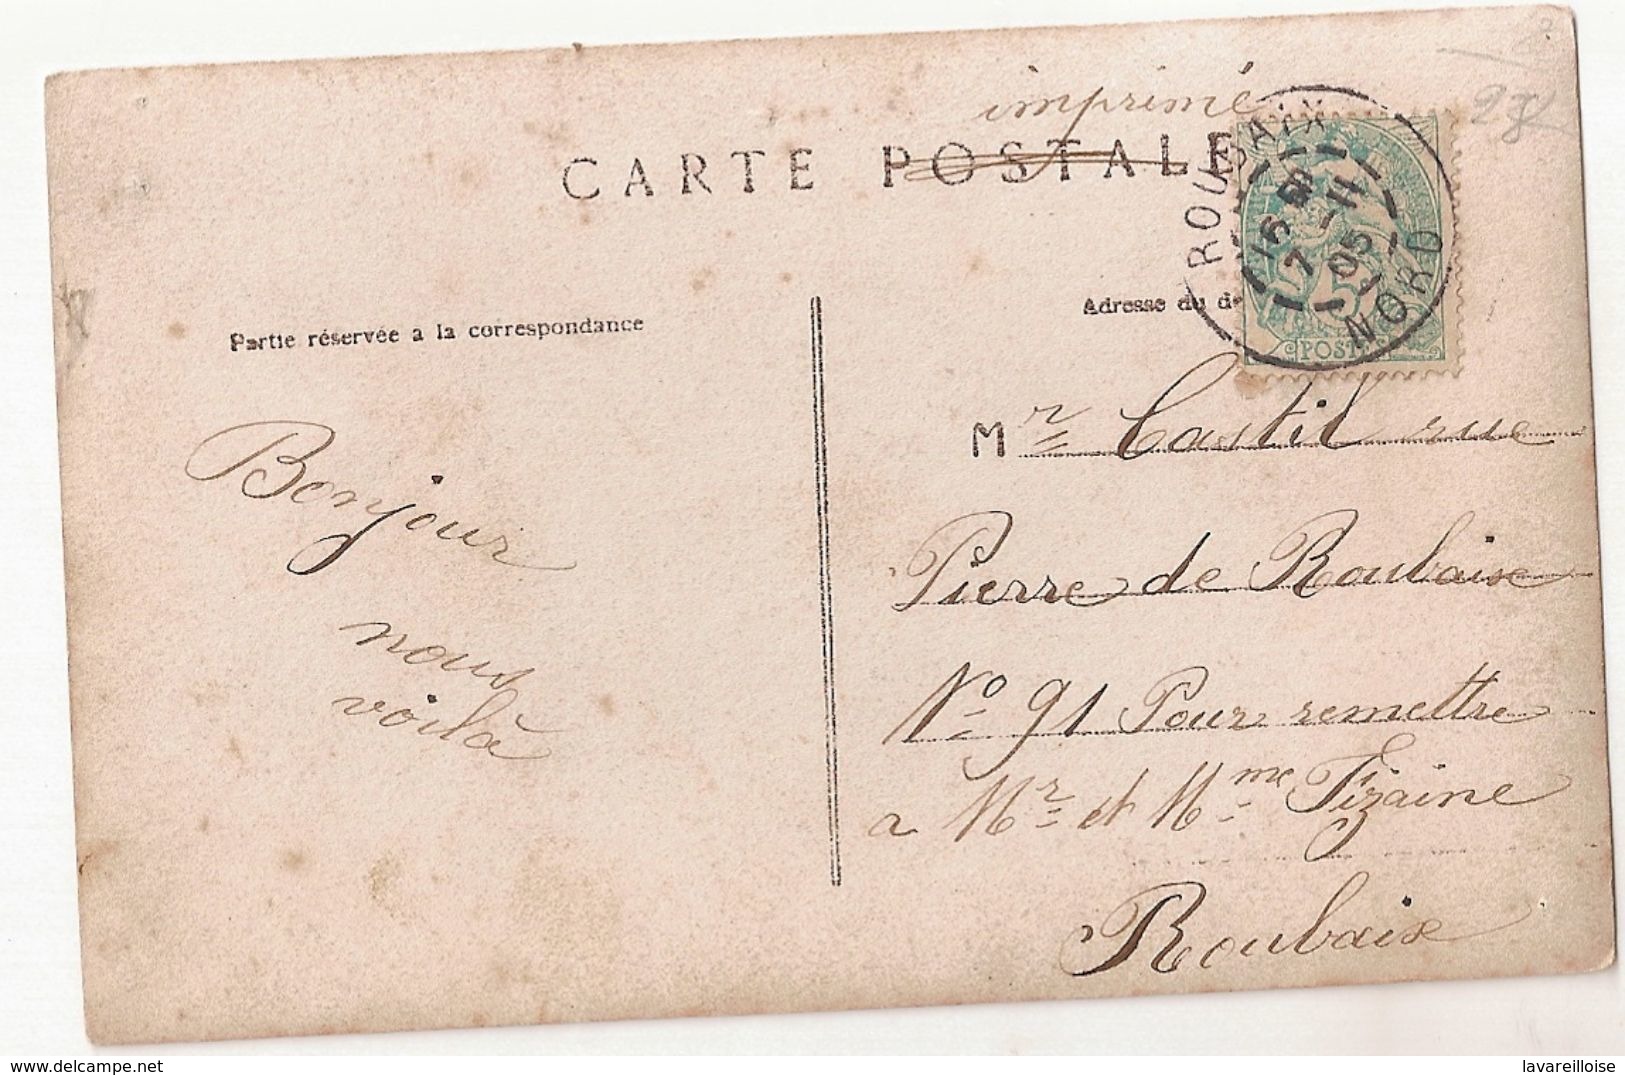 imprimé
CARTE POSTALE
ROUBAIX
16
7 -11
05
NORD
5
POSTES
Partie réservée a la correspondance
Adresse du de
Bonjour
nous
voilà
Mr Castil rue
Pierre de Roubaix
No 91 Pour remettre
a Mr et Mme Fizaine
Roubaix
delcampe.net
lavareilloise